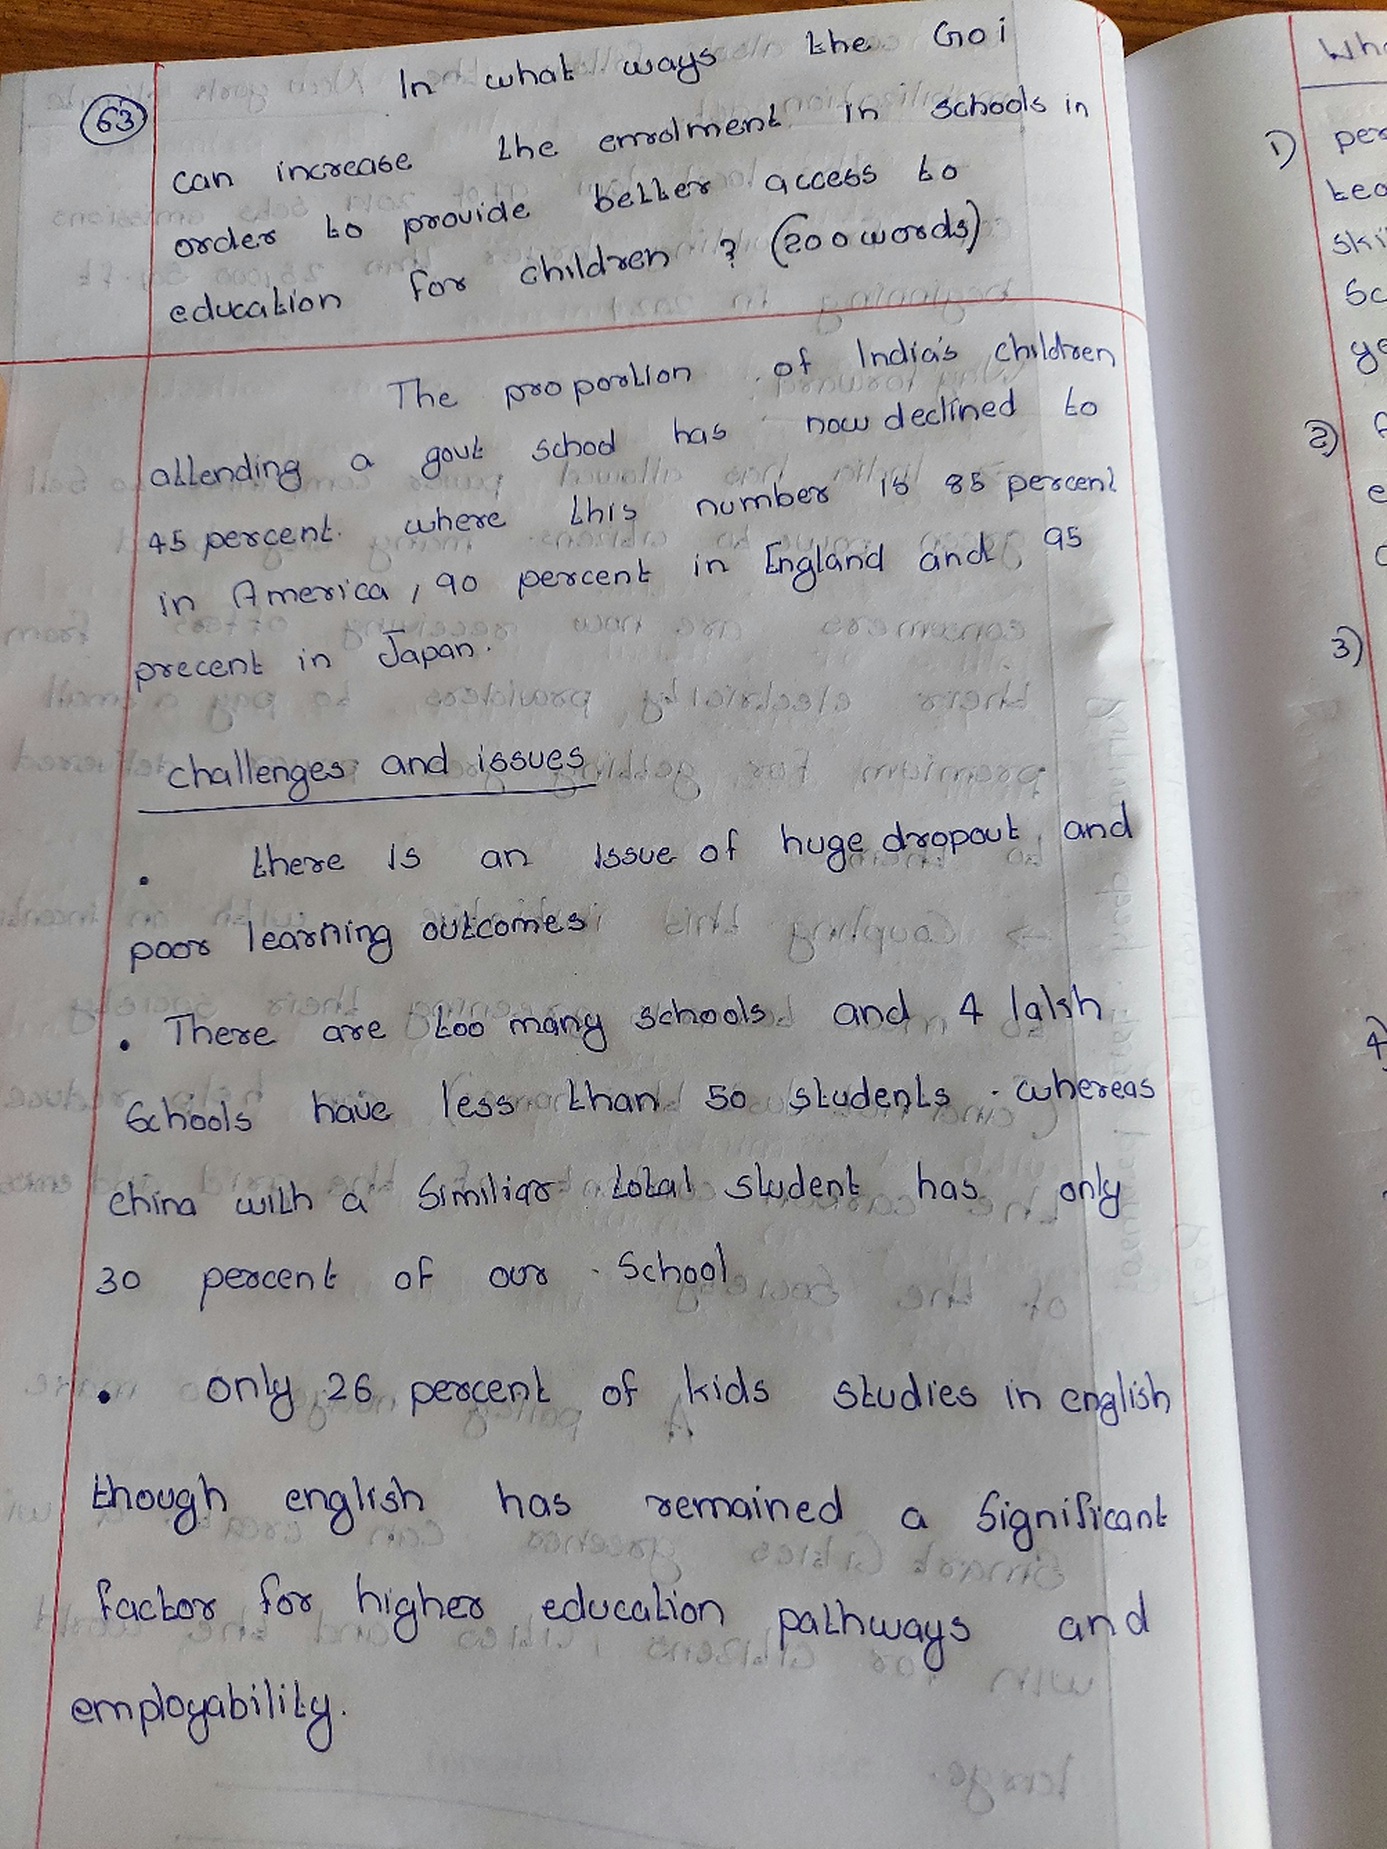 63
In what ways the GoI
can increase the enrolment in schools in
order to provide better access to
education for children ? (200 words)
The proportion of India's children
attending a govt school has now declined to
45 percent. where this number is 85 percent
in America, 90 percent in England and 95
precent in Japan.
challenges and issues
• there is an issue of huge dropout and
poor learning outcomes
• There are too many schools and 4 lakh
Schools have less than 50 students. whereas
china with a similiar total student has only
30 percent of our School
• only 26 percent of kids studies in english
though english has remained a significant
factor for higher education pathways and
employability.
1)
2)
3)